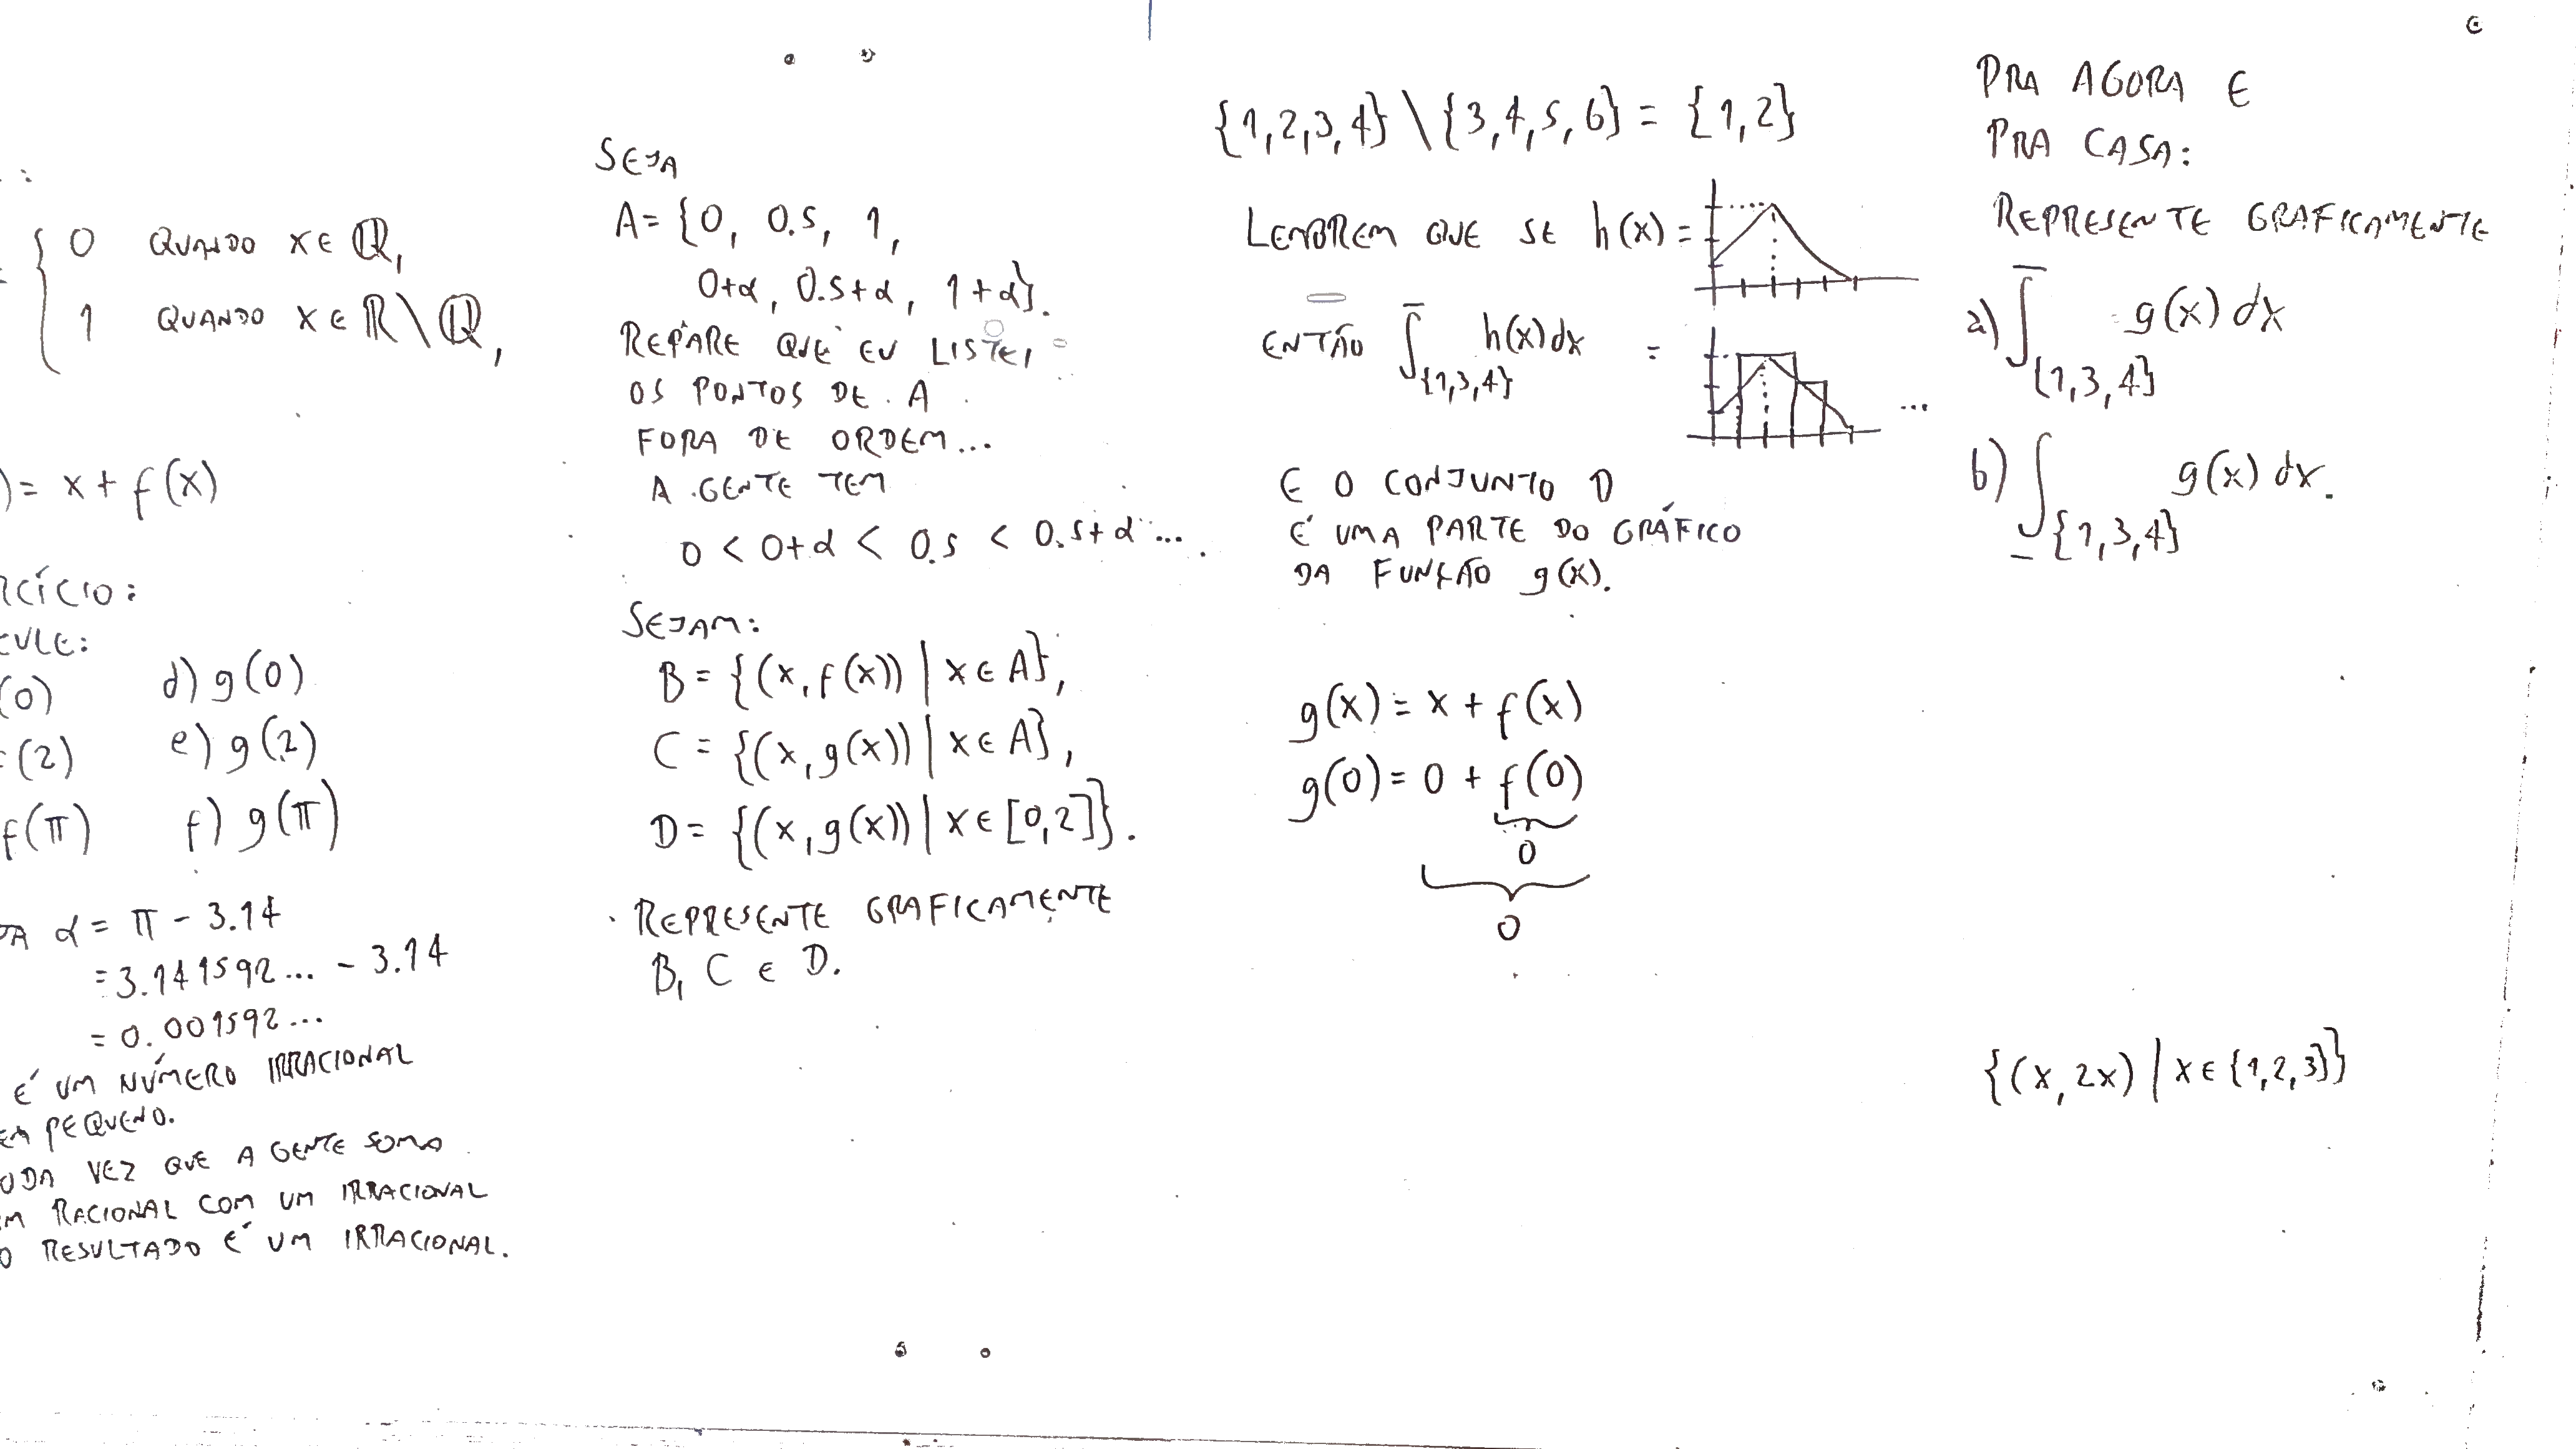 :
{ 0 QUANDO x ∈ ℚ,
1 QUANDO x ∈ ℝ \ ℚ,
) = x + f(x)
RCÍCIO:
CULE:
(0) d) g(0)
f(2) e) g(2)
f(π) f) g(π)
JA α = π - 3.14
= 3.141592... - 3.14
= 0.001592...
É UM NÚMERO IRRACIONAL
EM PEQUENO.
ODA VEZ QUE A GENTE SOMA
M RACIONAL COM UM IRRACIONAL
O RESULTADO É UM IRRACIONAL.
SEJA
A = {0, 0.5, 1,
0+α, 0.5+α, 1+α}.
REPARE QUE EU LISTEI
OS PONTOS DE A
FORA DE ORDEM...
A GENTE TEM
0 < 0+α < 0.5 < 0.5+α ...
SEJAM:
B = {(x, f(x)) | x ∈ A},
C = {(x, g(x)) | x ∈ A},
D = {(x, g(x)) | x ∈ [0,2]}.
REPRESENTE GRAFICAMENTE
B, C E D.
{1,2,3,4} \ {3,4,5,6} = {1,2}
LEMBREM QUE SE h(x) =
ENTÃO ∫‾_{1,3,4} h(x) dx = ...
E O CONJUNTO D
É UMA PARTE DO GRÁFICO
DA FUNÇÃO g(x).
g(x) = x + f(x)
g(0) = 0 + f(0)
0
0
PRA AGORA E
PRA CASA:
REPRESENTE GRAFICAMENTE
a) ∫‾_{1,3,4} g(x) dx
b) ∫_{1,3,4} g(x) dx.
{(x, 2x) | x ∈ {1,2,3}}